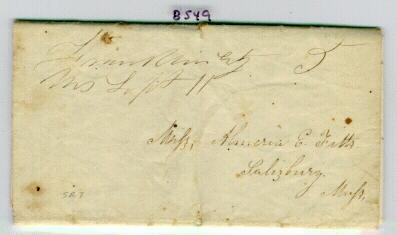 B549
Franklin City 5
Ms Sept 11
Miss, Almeria E. Fitts
Salisbury.
Mass,
SR7